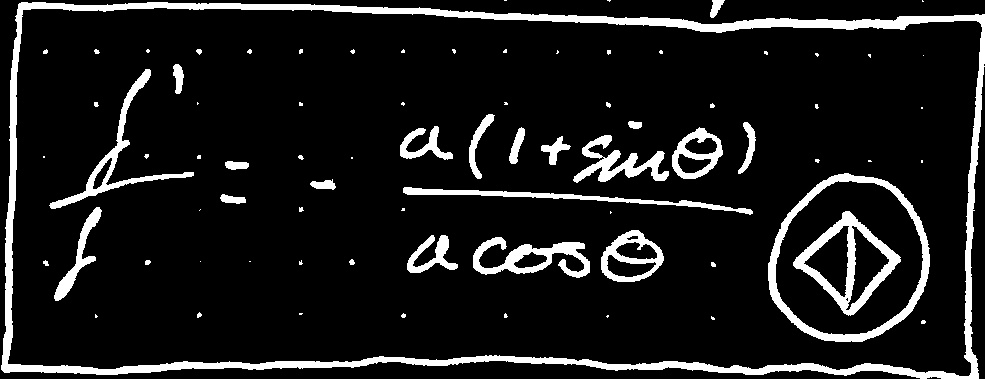 f'/f = - a(1+sinθ)/a cosθ